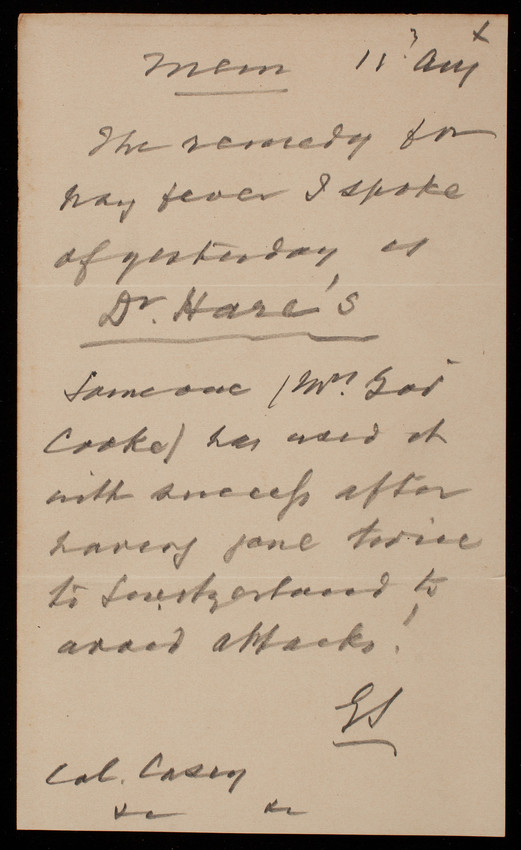 Mem 11 Aug x
The remedy for
hay fever I spoke
of yesterday is
Dr. Hare's
Someone (Mrs.
Cooke) has used it
with success after
having gone twice
to Switzerland to
avoid attacks!
GS
Col. Casey
&c &c